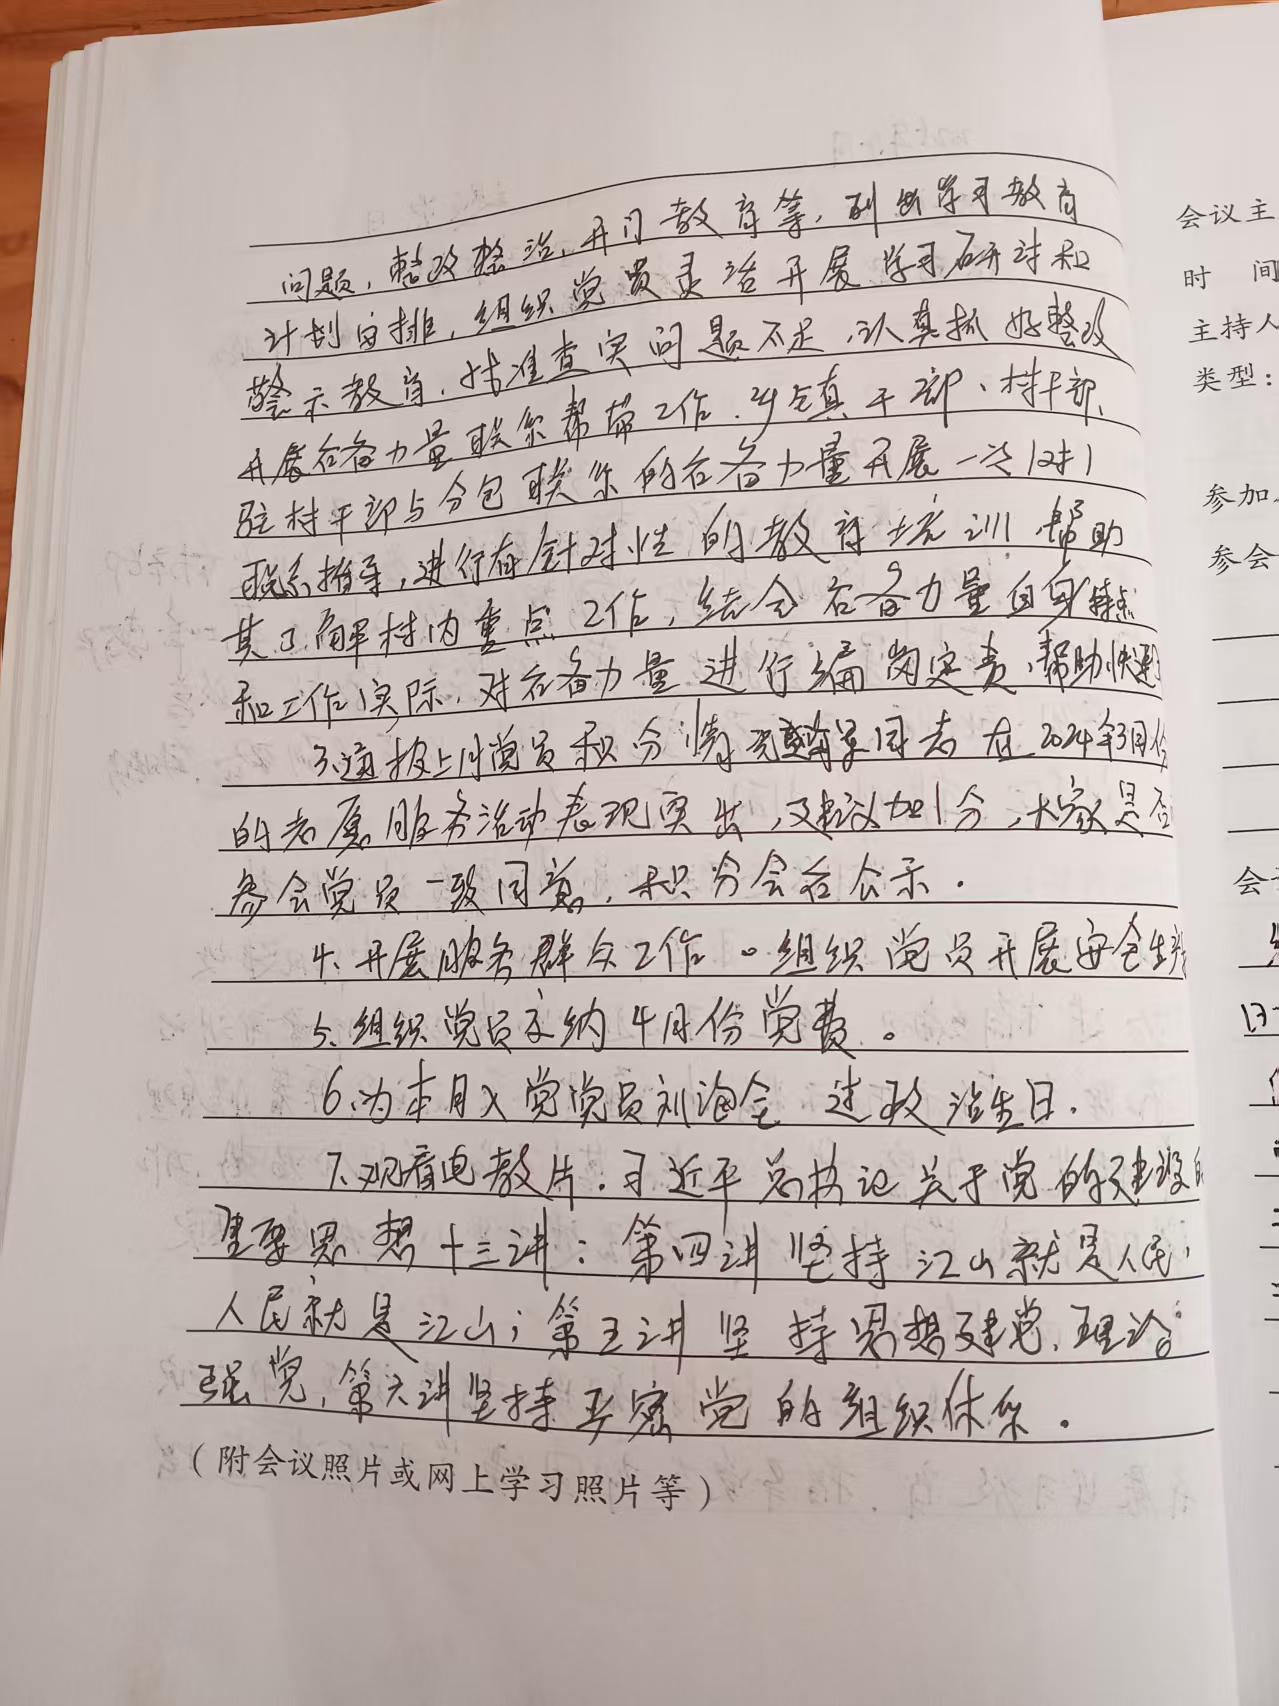 问题，整改整治、开门教育等，列出学习教育
计划安排，组织党员灵活开展学习研讨和
警示教育，找准查实问题不足，认真抓好整改
开展后备力量联系帮带工作，乡镇干部、村干部、
驻村干部与分包联系的后备力量开展一次1对1
联系指导，进行有针对性的教育培训 帮助
其了解村内重点工作，结合后备力量自身特点
和工作实际，对后备力量进行编岗定责，帮助快速
3.通报上月党员积分情况 同志在2024年3月份
的志愿服务活动表现突出，建议加1分，大家是否
参会党员一致同意，积分会后公示。
4、开展服务群众工作。组织党员开展安全生产
5、组织党员交纳4月份党费。
6、为本月入党党员刘海全 过政治生日。
7、观看电教片：习近平总书记关于党的建设的
重要思想十三讲：第四讲坚持江山就是人民，
人民就是江山；第五讲坚持思想建党、理论
强党，第六讲坚持严密党的组织体系。
（附会议照片或网上学习照片等）
会议主
时 间
主持人
类型：
参加人
参会
会